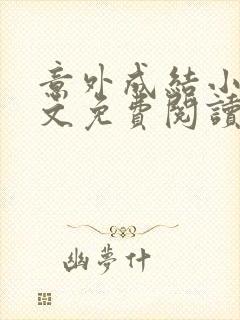 意外成結小
文免費閱讀
幽夢什